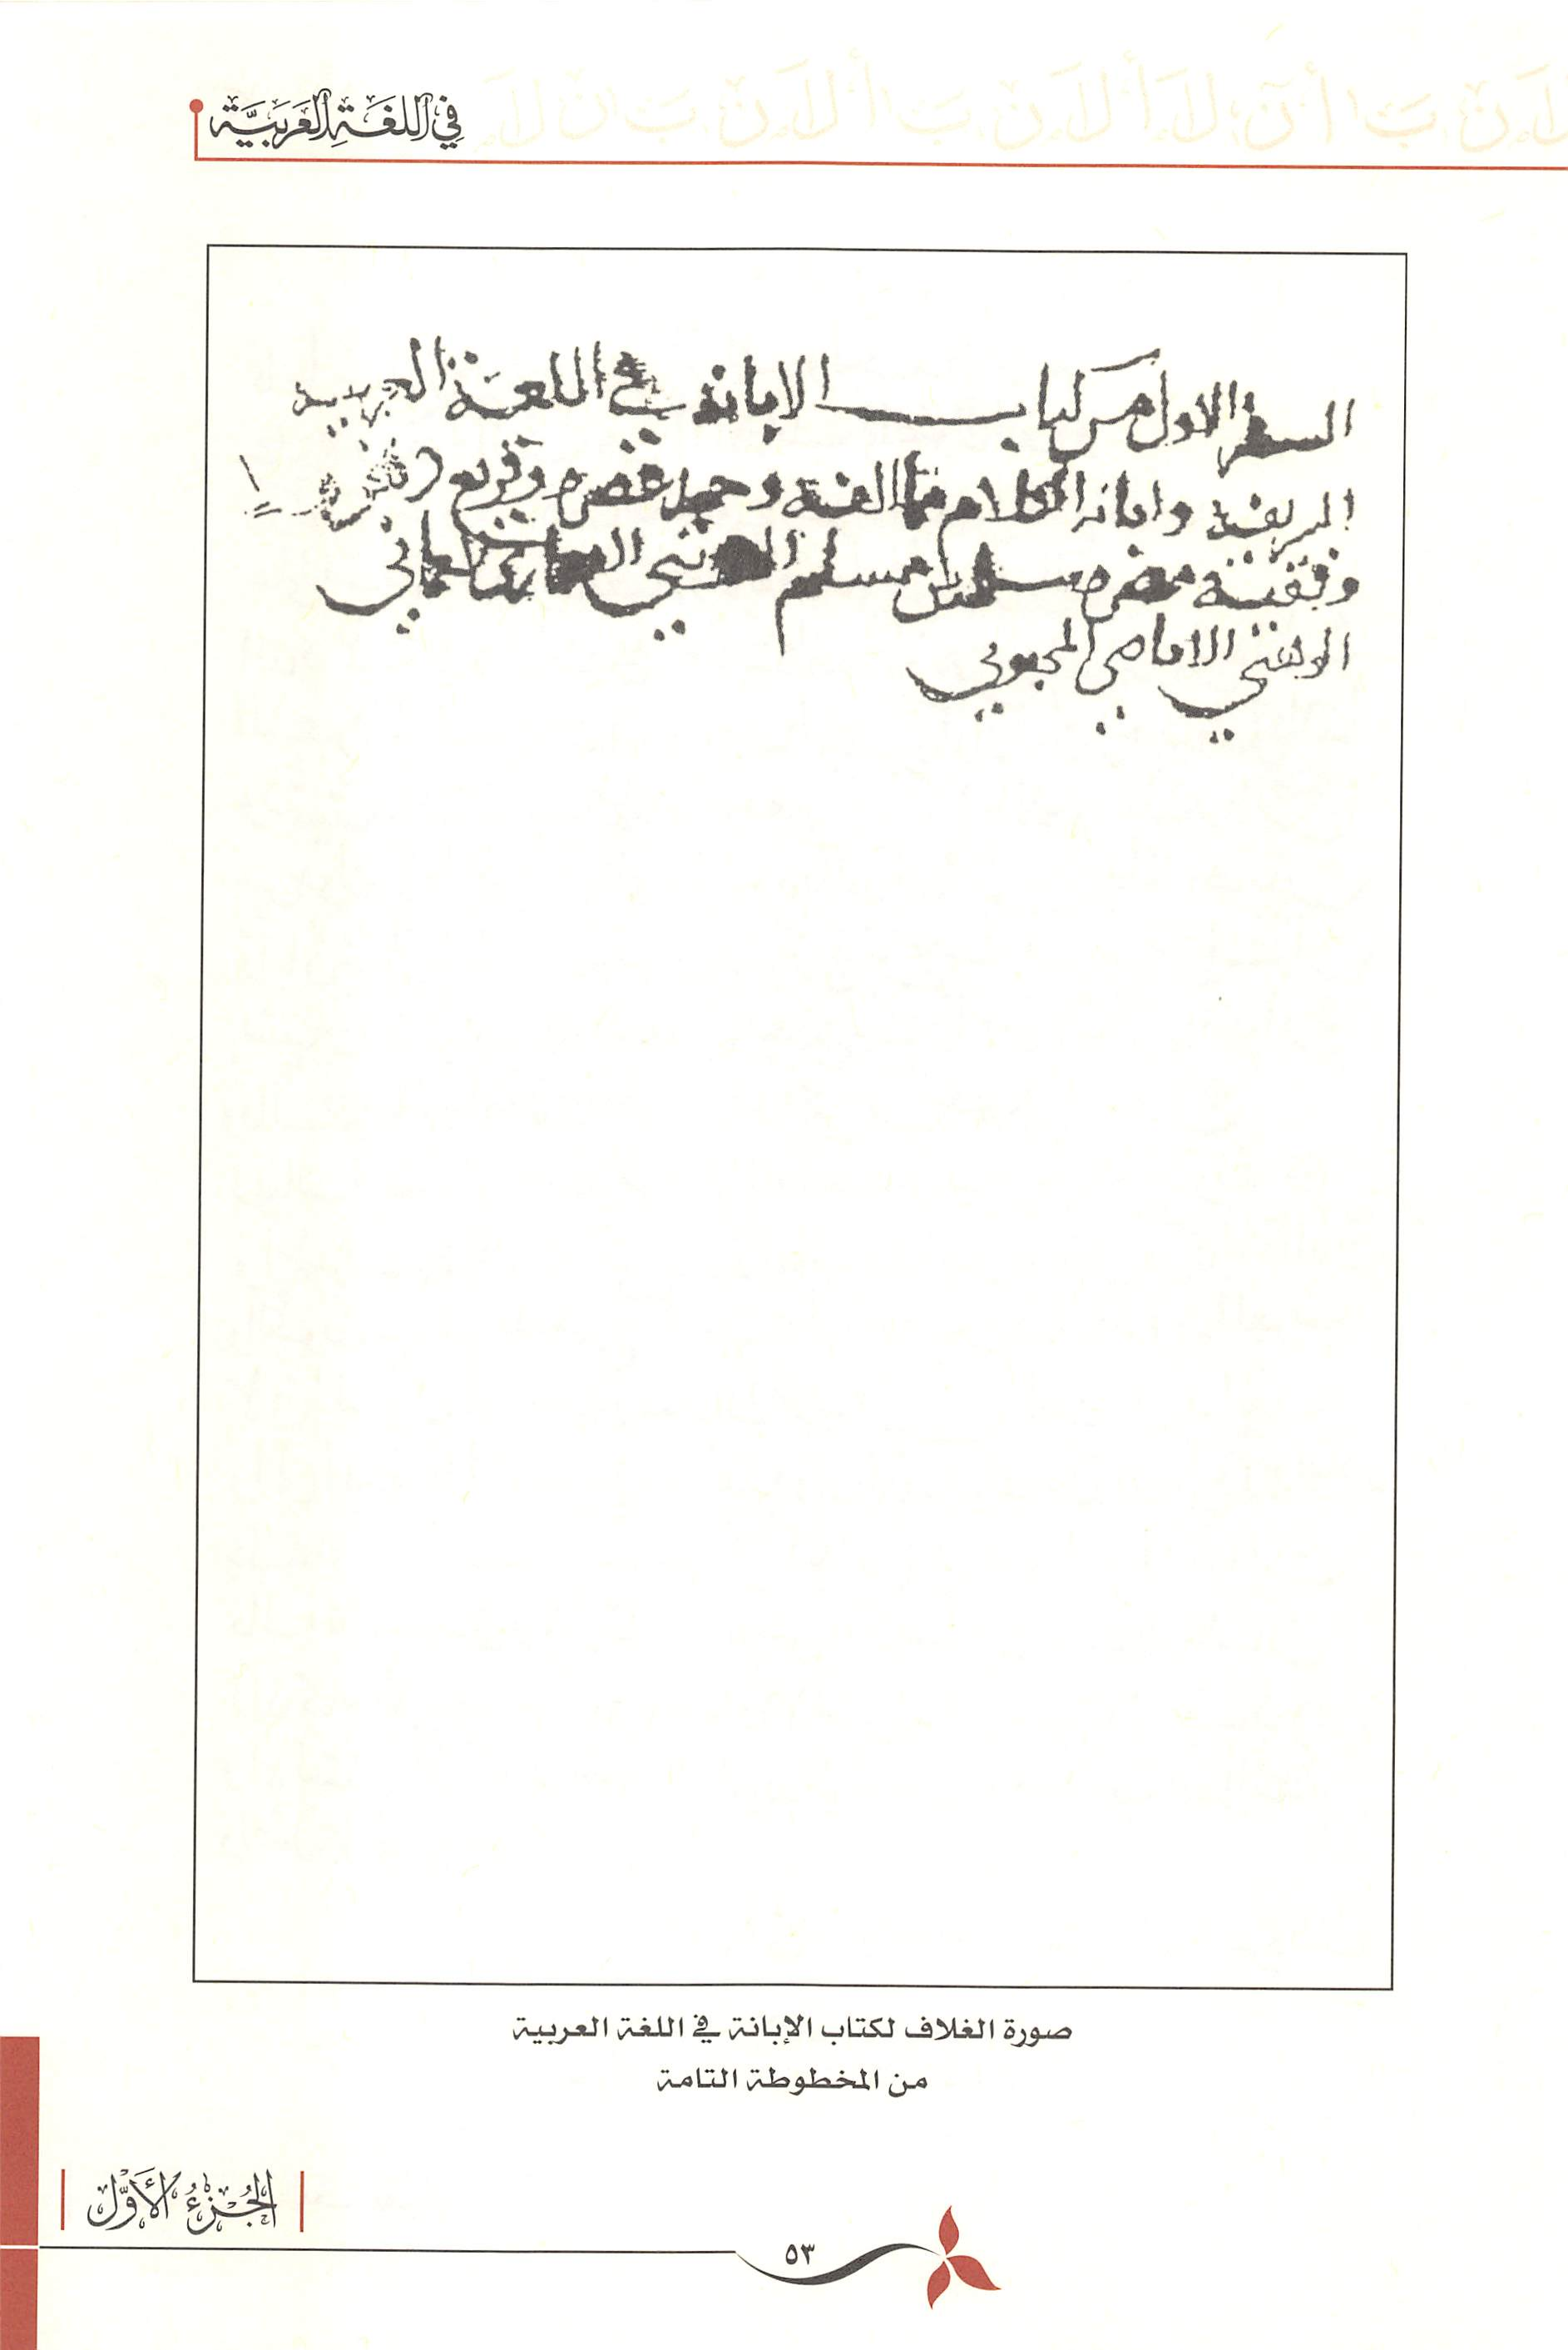 في اللغَةِ العَرَبيَّة
السفر الاول من كتاب الابانة في اللغة العربيه
وابانة الكلام مما الفه وحيد عصره وفريد
وفقيه مصره سلمة بن مسلم العماني
الوهبي الاباضي المحبوبي
صورة الغلاف لكتاب الإبانة في اللغة العربية
من المخطوطة التامة
الجُزءُ الأَوَّل
٥٣